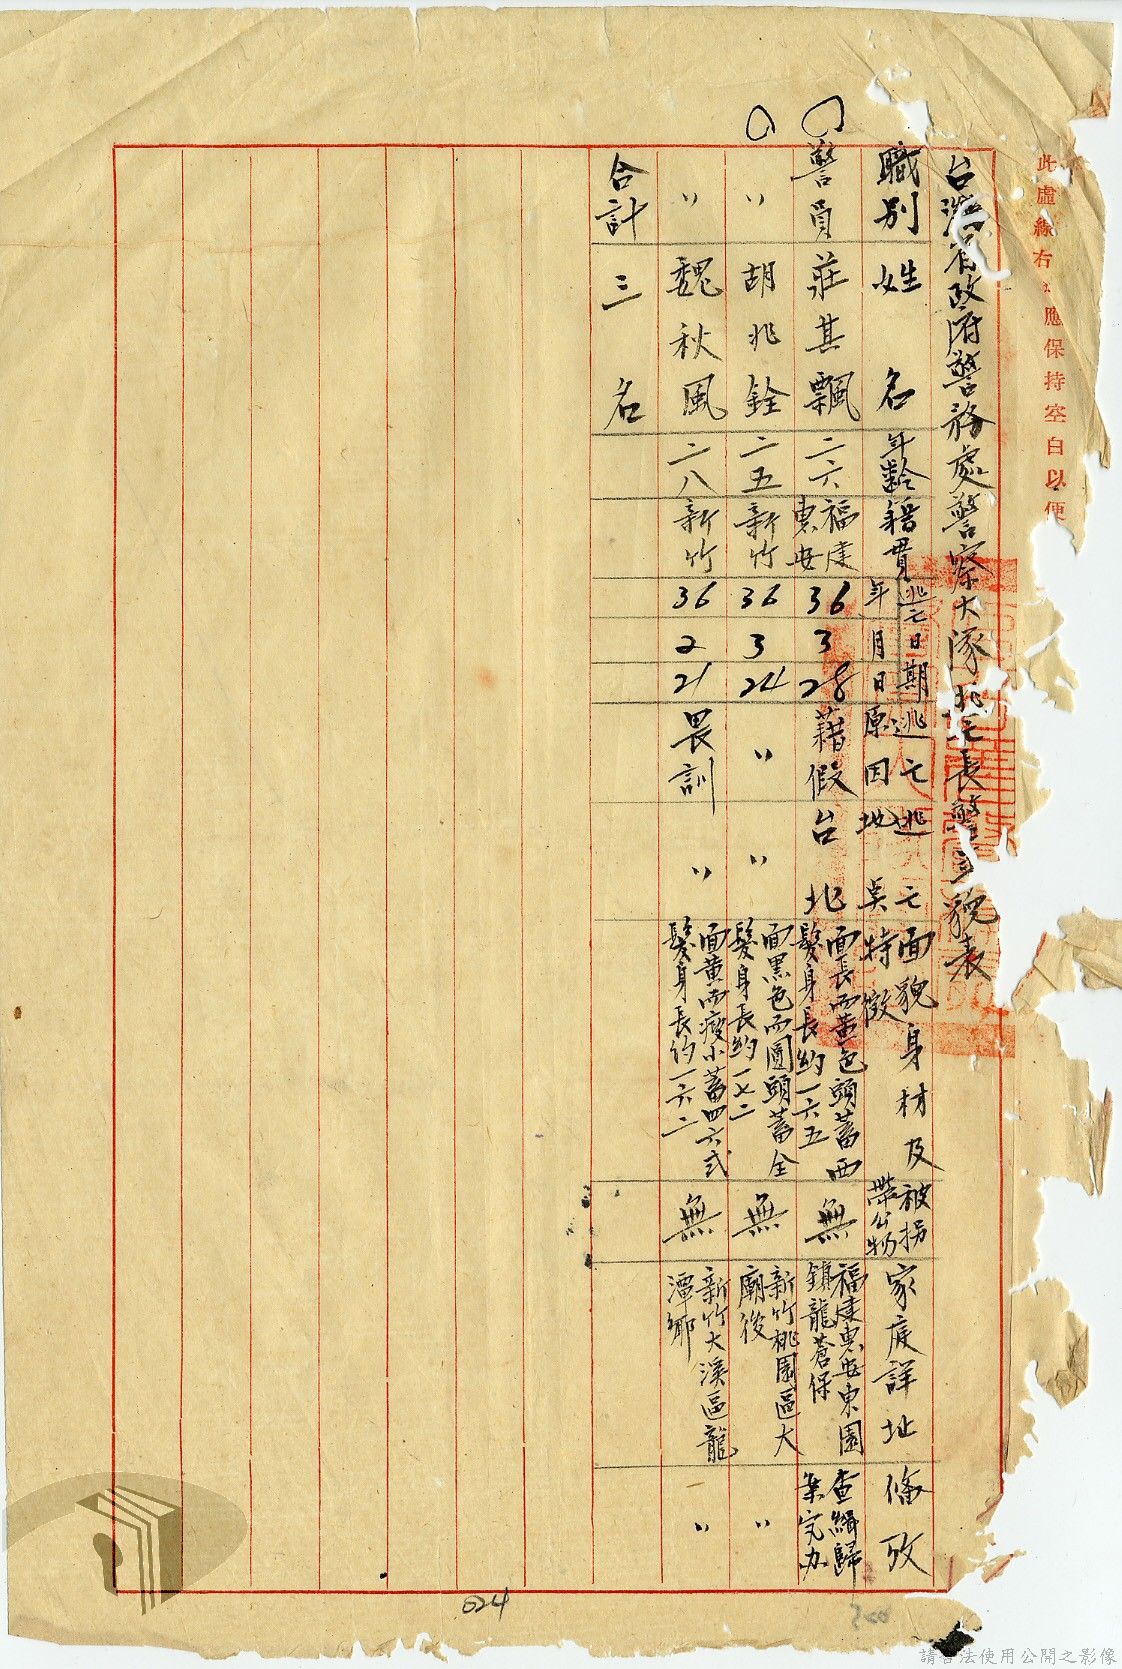 此虛線右 應保持空白以便
台灣省政府警務處警察大隊逃亡長警 貌表
職別 姓名 年齡 籍貫 逃亡日期 年 月 日 逃亡原因 逃亡地點 面貌身材及特徵 被拐帶公物 家庭詳址 備攷
警員 莊其飄 二六 福建惠安 36 3 28 藉假 台北 面長面黃色頭蓄西髮身長約一六五 無 福建惠安東園鎮龍蒼保 查緝歸案究办
〃 胡兆銓 二五 新竹 36 3 24 〃 〃 面黑色而圓頭蓄全髮身長約一七二 無 新竹桃園區大廟後 〃
〃 魏秋風 二八 新竹 36 2 21 畏訓 〃 面黃而瘦小蓄四六式髮身長約一六二 無 新竹大溪區龍潭鄉 〃
合計 三名
024
請合法使用公開之影像